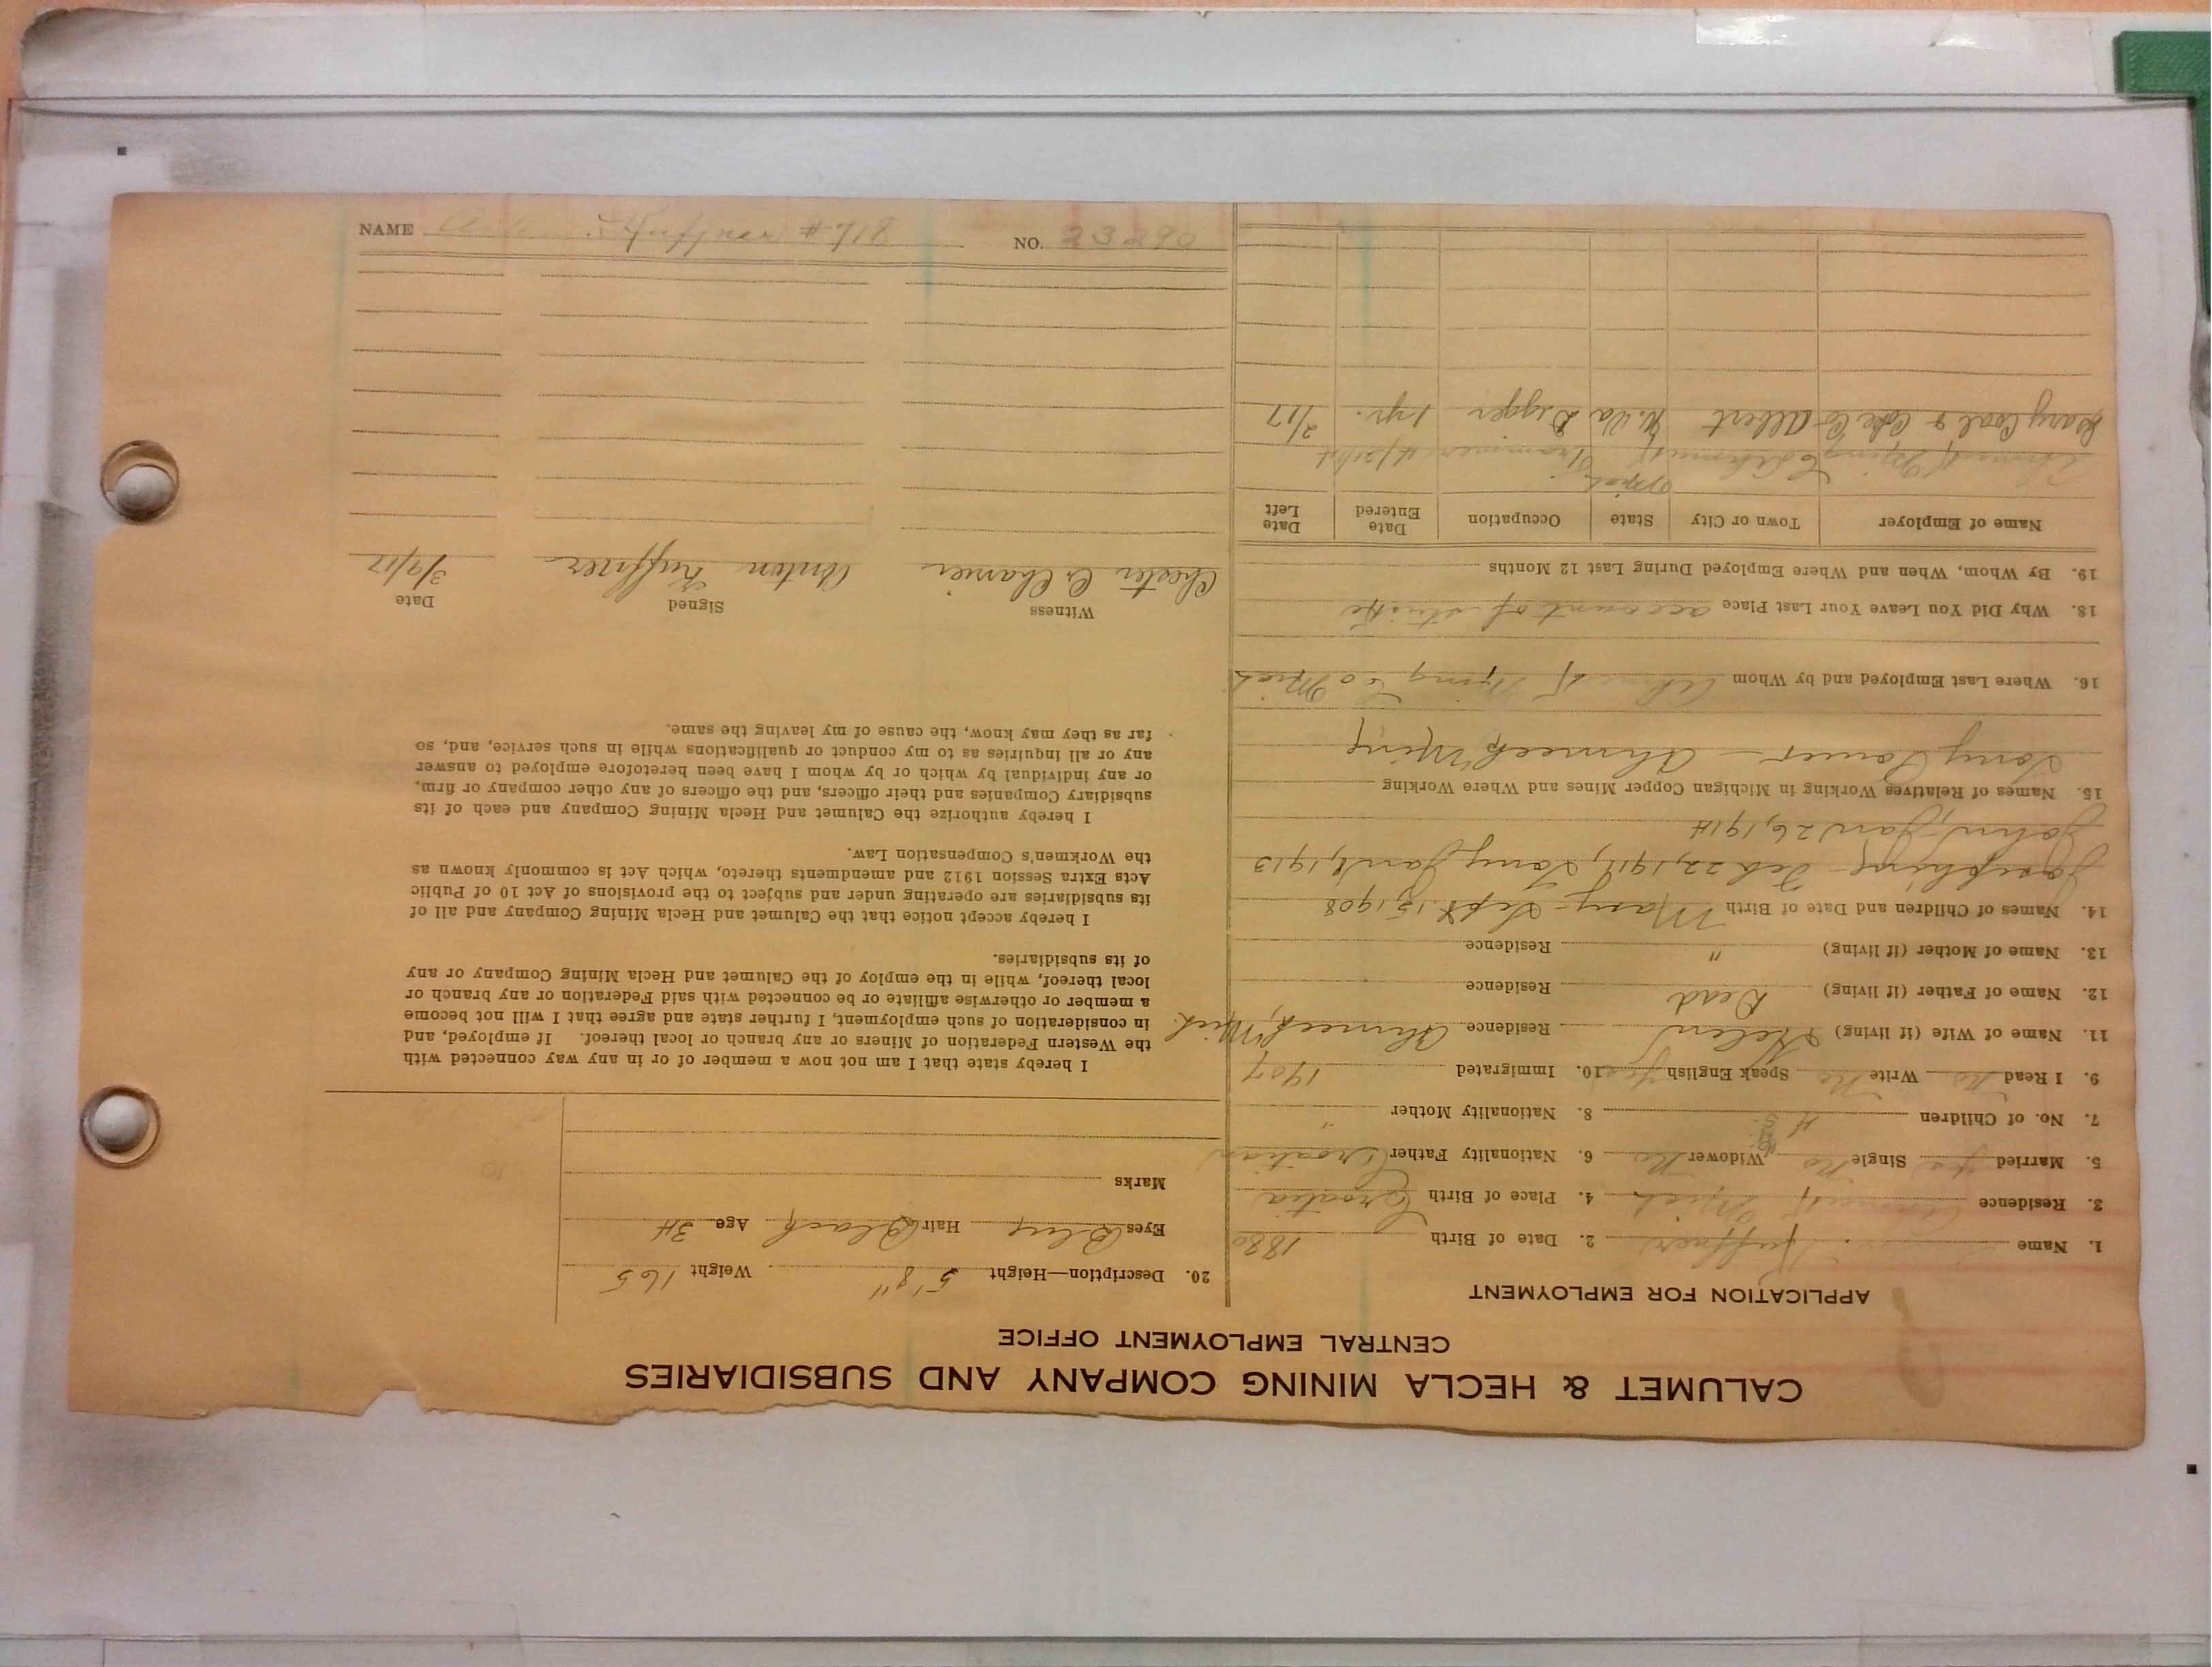 CALUMET & HECLA MINING COMPANY AND SUBSIDIARIES
CENTRAL EMPLOYMENT OFFICE
APPLICATION FOR EMPLOYMENT
1. Name Kuffner 2. Date of Birth 1880
3. Residence Ahmeek Mich 4. Place of Birth Croatia
5. Married yes Single No Widower No 6. Nationality Father Croatian
7. No. of Children 4 8. Nationality Mother "
9. I Read No Write No Speak English yes 10. Immigrated 1907
11. Name of Wife (if living) Helen Residence Ahmeek, Mich.
12. Name of Father (if living) Dead Residence
13. Name of Mother (if living) " Residence
14. Names of Children and Date of Birth Mary - Sept. 15, 1908
Josephine - Feb 22, 1911, Tony Jan 1, 1913
John, Jan 26, 1914
15. Names of Relatives Working in Michigan Copper Mines and Where Working
Tony - Ahmeek Mine
16. Where Last Employed and by Whom Ahmeek Mining Co Mich
18. Why Did You Leave Your Last Place account of strike
19. By Whom, When and Where Employed During Last 12 Months
Name of Employer Town or City State Occupation Date Entered Date Left
Ahmeek Mining Co Ahmeek Mich Trammer
Gary Coal & Coke Co Albert W. Va Digger 1 yr. 2/17
20. Description—Height 5' 8" Weight 165
Eyes Blue Hair Black Age 34
Marks
I hereby state that I am not now a member of or in any way connected with
the Western Federation of Miners or any branch or local thereof. If employed, and
in consideration of such employment, I further state and agree that I will not become
a member or otherwise affiliate or be connected with said Federation or any branch or
local thereof, while in the employ of the Calumet and Hecla Mining Company or any
of its subsidiaries.
I hereby accept notice that the Calumet and Hecla Mining Company and all of
its subsidiaries are operating under and subject to the provisions of Act 10 of Public
Acts Extra Session 1912 and amendments thereto, which Act is commonly known as
the Workmen's Compensation Law.
I hereby authorize the Calumet and Hecla Mining Company and each of its
subsidiary Companies and their officers, and the officers of any other company or firm,
or any individual by which or by whom I have been heretofore employed to answer
any or all inquiries as to my conduct or qualifications while in such service, and, so
far as they may know, the cause of my leaving the same.
Witness Signed Date
Chester C. Anton Kuffner 3/9/17
NAME Anton Kuffner #718 NO. 23290